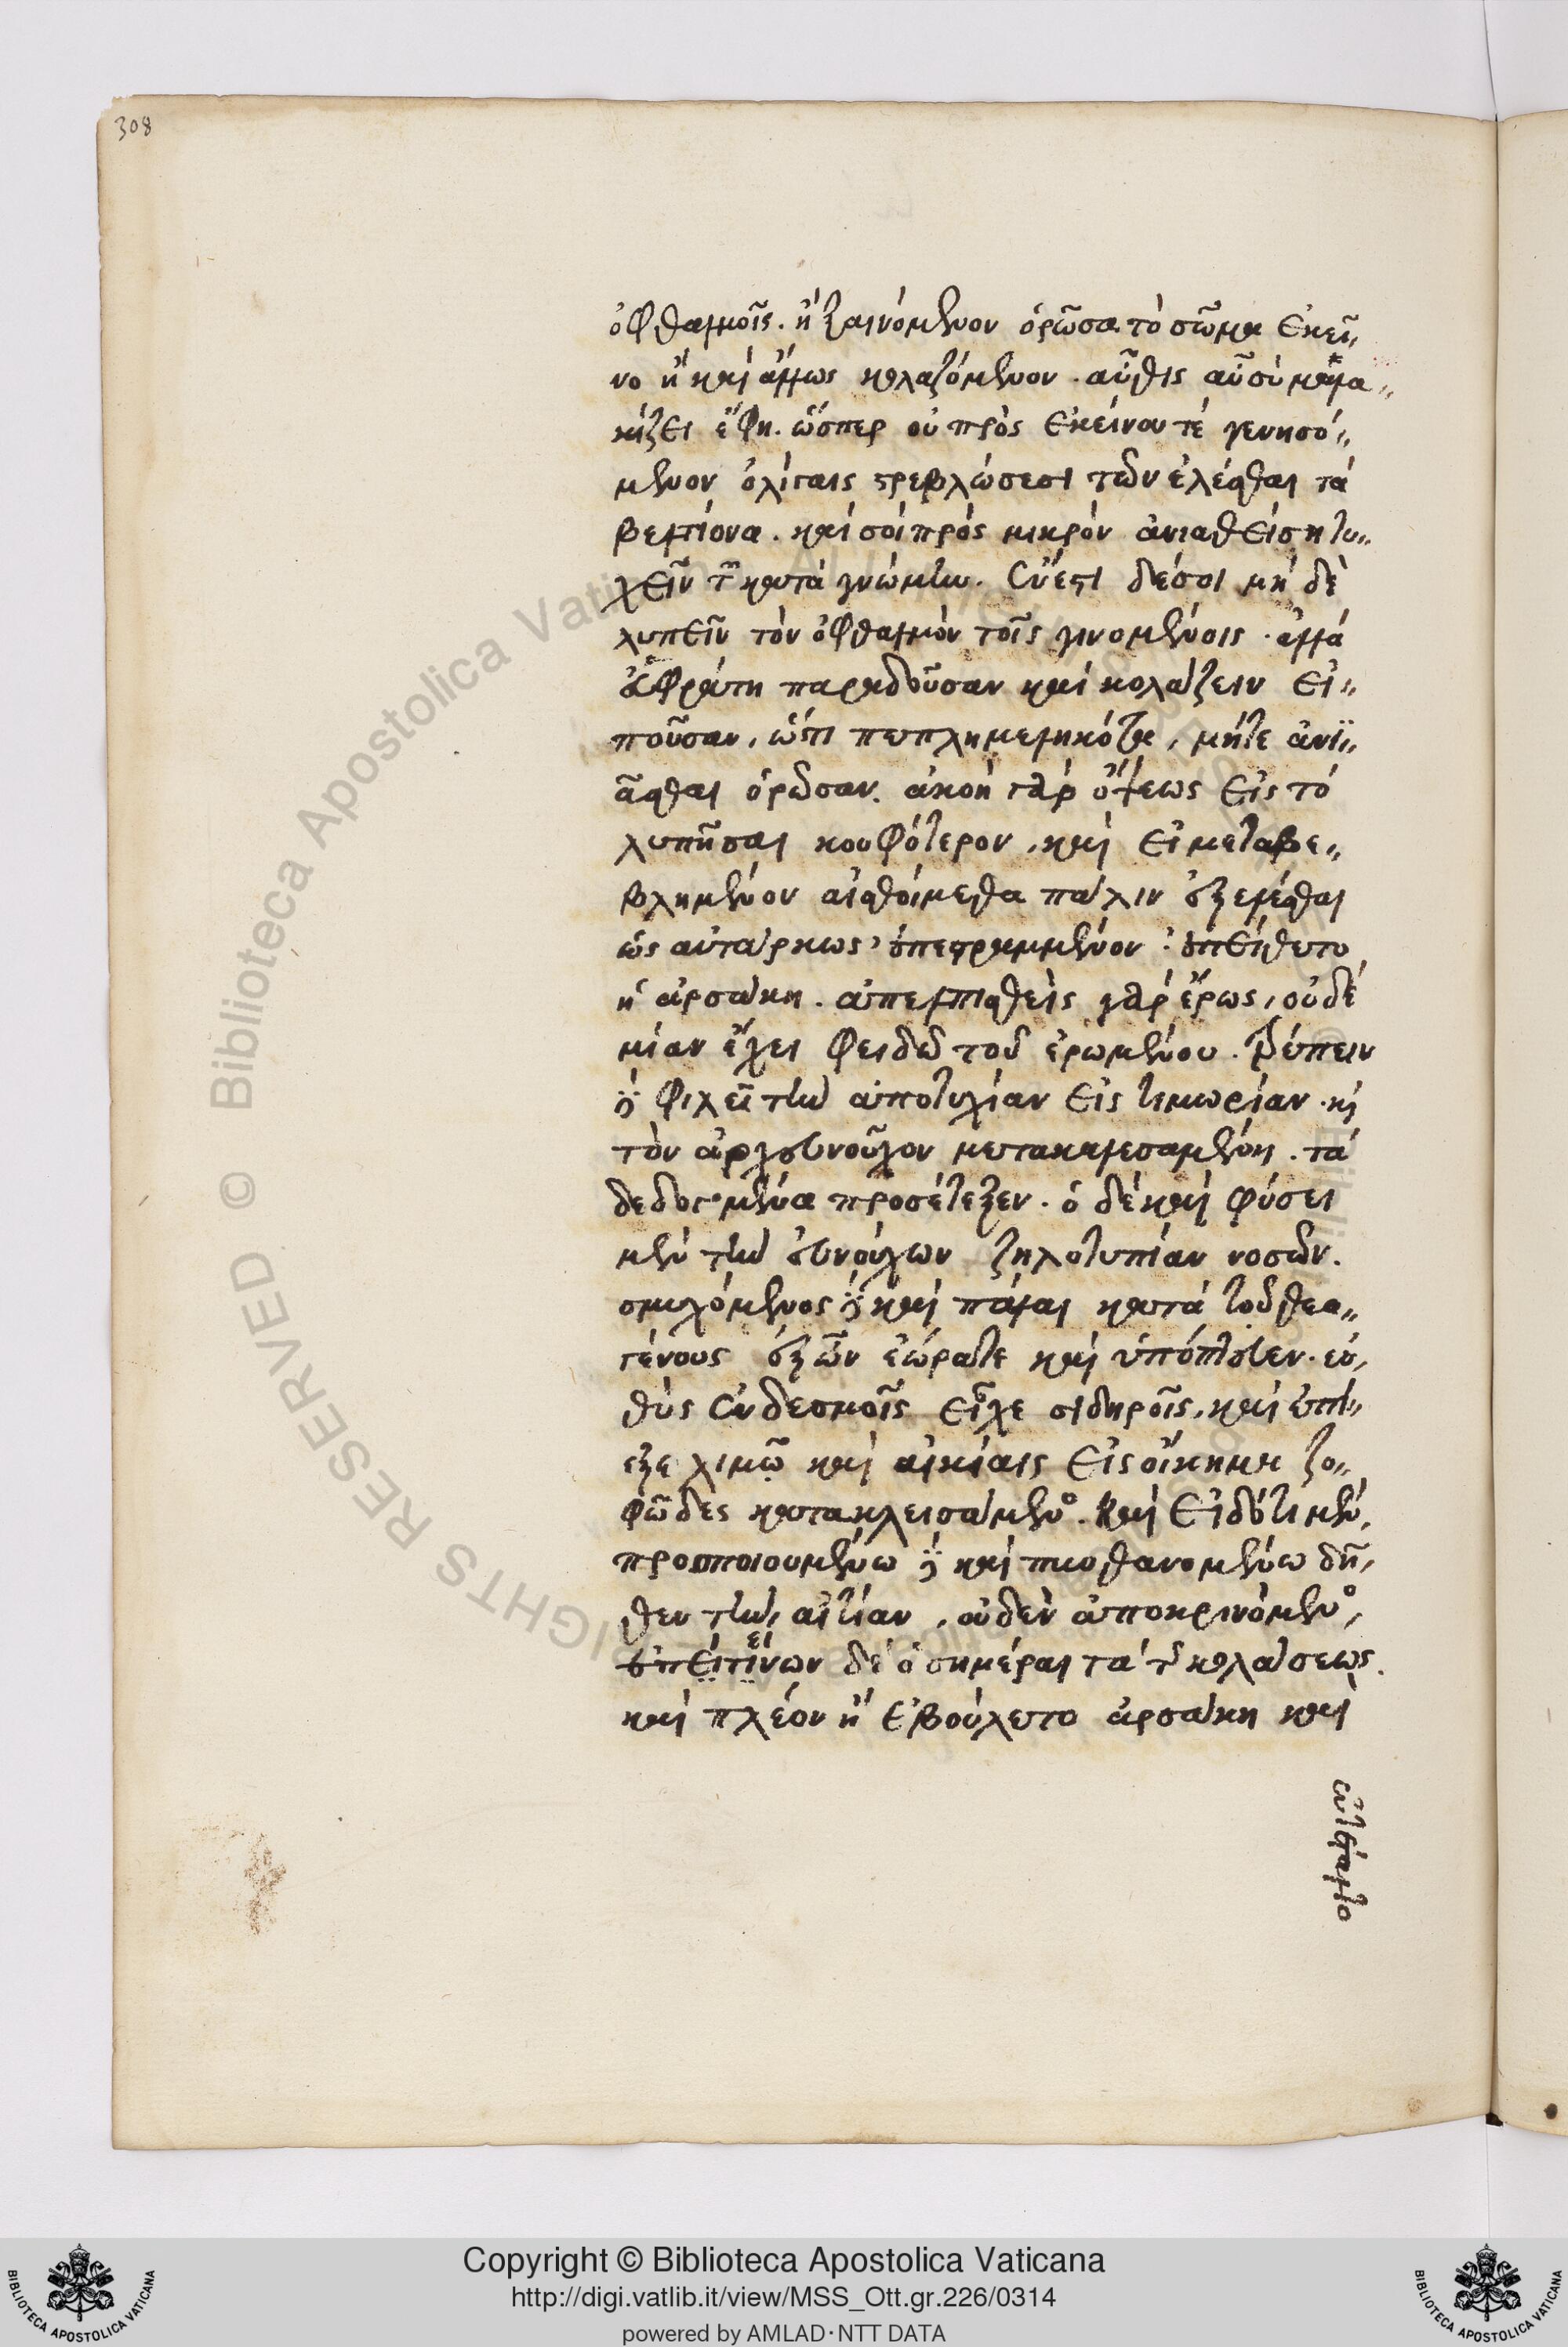 308
ὀφθαλμοῖς. ἢ ξαινόμενον ὁρῶσα τὸ σῶμα ἐκεῖ,,
νο ἢ καὶ ἄλλως κολαζόμενον. αὖθις αὖ σὺ μαλα,,
κίζει ἔφη. ὥσπερ οὐ πρὸς ἐκείνου τὲ γενησό,,
μενον ὀλίγαις στρεβλώσεσι τῶν ἑλέσθαι τὰ
βελτίονα. καὶ σοὶ πρὸς μικρὸν ἀνιαθείσῃ τυ,,
χεῖν τῶν κατὰ γνώμην. ἔνεστι δέ σοι μὴ δὲ
λυπεῖν τὸν ὀφθαλμὸν τοῖς γινομένοις. ἀλλὰ
εὐφράτῃ παραδοῦσαν καὶ κολάζειν εἰ,,
ποῦσαν, ὥς τι πεπλημμεληκότα, μήτε ἀνϊ,,
ᾶσθαι ὁρῶσαν. ἀκοὴ γὰρ ὄψεως εἰς τὸ
λυπῆσαι κουφότερον, καὶ εἰ μεταβε,,
βλημένον αἰσθοίμεθα πάλιν ἐξελέσθαι
ὡς αὐτάρκως ἐπεστραμμένον. ἐπείθετο
ἡ ἀρσάκη. ἀπελπισθεὶς γὰρ ἔρως, οὐδε
μίαν ἔχει φειδὼ τοῦ ἐρωμένου. τρέπειν
δὲ φιλεῖ τὴν ἀποτυχίαν εἰς τιμωρίαν. καὶ
τὸν ἀρχευνοῦχον μετακαλεσαμένη. τὰ
δεδογμένα προσέταξεν. ὁ δὲ καὶ φύσει
μὲν τὴν εὐνούχων ζηλοτυπίαν νοσῶν.
σμυχόμενος δὲ καὶ πάλαι κατὰ τοῦ θεα,,
γένους ἐξ ὧν ἑώρατε καὶ ὑπόπτευεν. εὐ,
θὺς ἐν δεσμοῖς εἶχε σιδηροῖς, καὶ ἐπί,,
εζε λιμῷ καὶ αἰκίαις εἰς οἴκημα ζο,,
φῶδες κατακλεισάμενος. καὶ εἰδότι μὲν,
προσποιουμένω δὲ καὶ πυνθανομένω δῆ,
θεν τὴν αἰτίαν, οὐδὲν ἀποκρινόμενος,
ἐπιτείνων δὲ ὁσημέραι τὰ τῆς κολάσεως.
καὶ πλέον ἢ ἐβούλετο ἀρσάκη καὶ
ἐνετέταλτο
Copyright © Biblioteca Apostolica Vaticana
http://digi.vatlib.it/view/MSS_Ott.gr.226/0314
powered by AMLAD·NTT DATA